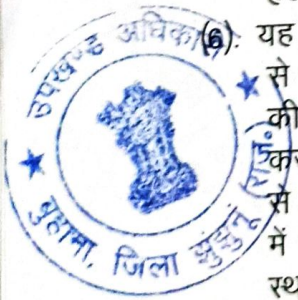 उपखण्ड अधिकारी
बुहाना, जिला झुंझुनूं (राज.)
(6). यह
से
की
कर
से
में